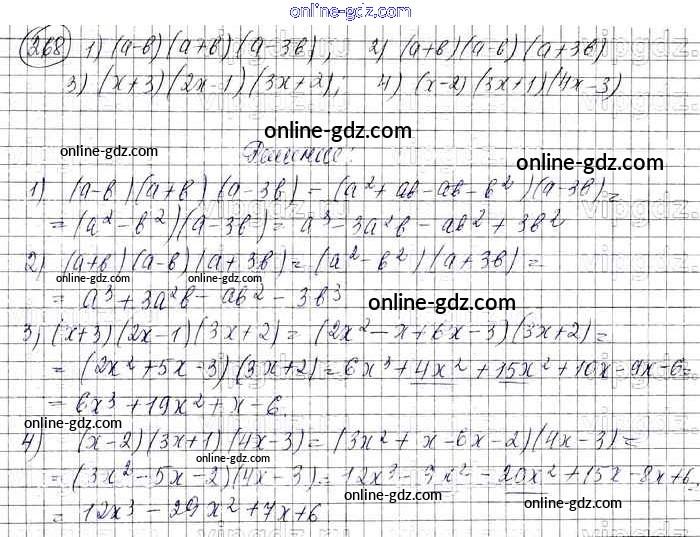 online-gdz.com
268 1) (a-в)(a+в)(a-3в), 2) (a+в)(a-в)(a+3в)
3) (x+3)(2x-1)(3x+2), 4) (x-2)(3x+1)(4x-3)
online-gdz.com
online-gdz.com
Решение:
online-gdz.com
1) (a-в)(a+в)(a-3в) = (a²+aв-aв-в²)(a-3в)=
= (a²-в²)(a-3в) = a³-3a²в-aв²+3в²
2) (a+в)(a-в)(a+3в)=(a²-в²)(a+3в)=
online-gdz.com online-gdz.com online-gdz.com
= a³+3a²в-aв²-3в³
online-gdz.com
3) (x+3)(2x-1)(3x+2)= (2x²-x+6x-3)(3x+2)=
= (2x²+5x-3)(3x+2)=6x³+4x²+15x²+10x-9x-6=
= 6x³+19x²+x-6.
online-gdz.com
4) (x-2)(3x+1)(4x-3)=(3x²+x-6x-2)(4x-3)=
=(3x²-5x-2)(4x-3)=12x³-9x²-20x²+15x-8x+6
online-gdz.com
online-gdz.com
= 12x³-29x²+7x+6
online-gdz.com